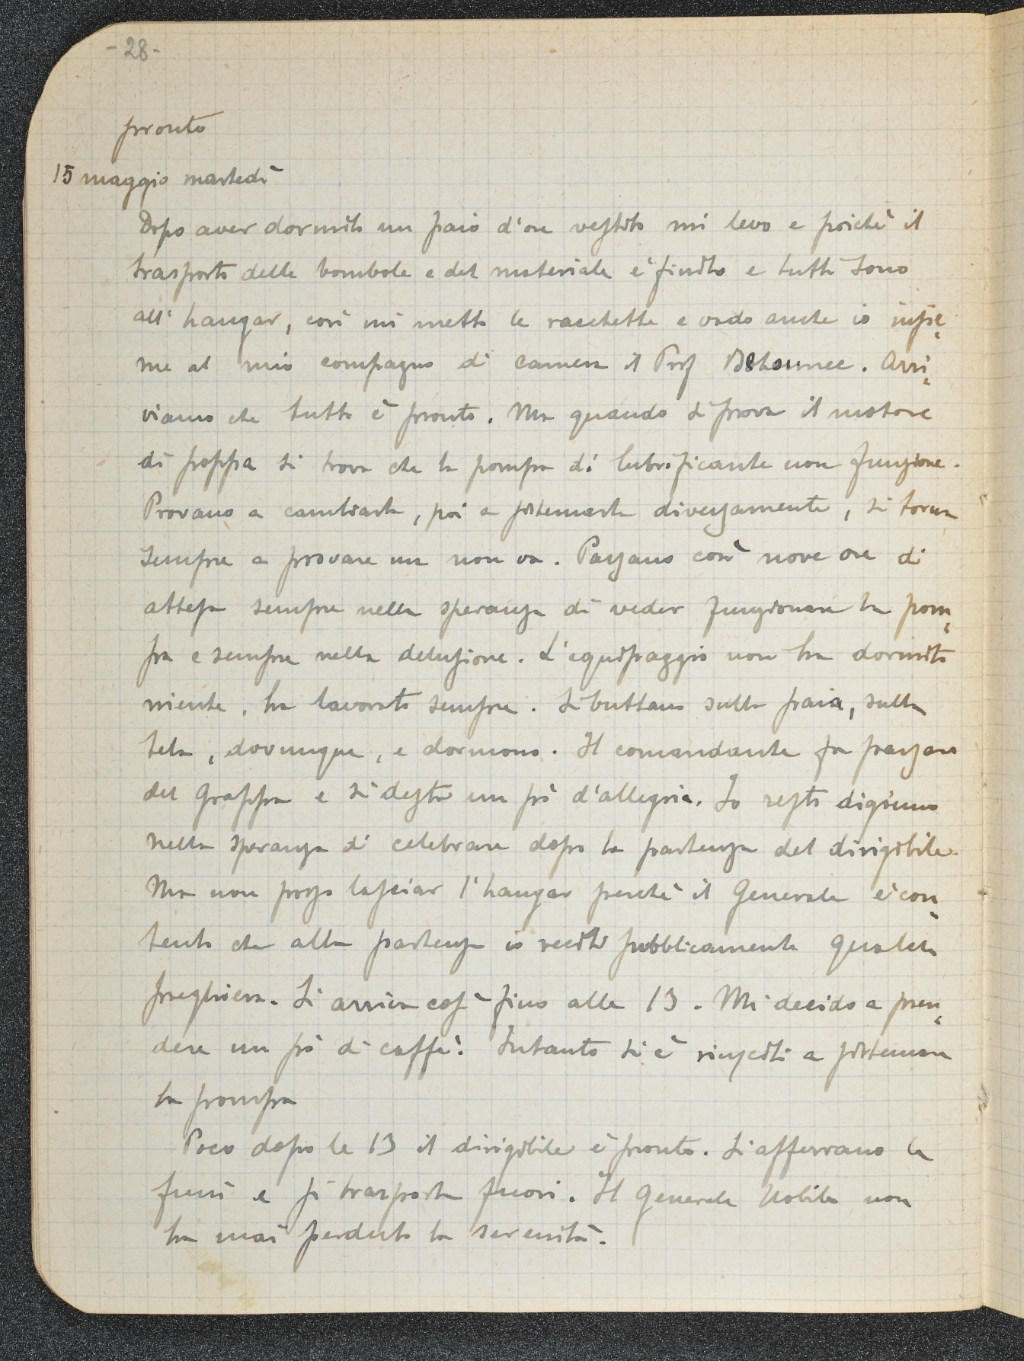 -28-
pronto
15 maggio martedì
Dopo aver dormito un paio d'ore vestito mi levo e poichè il
trasporto delle bombole e del materiale è finito e tutti sono
all'hangar, così mi metto le racchette e vado anche io insie-
me al mio compagno di camera il Prof Behounec. Arri-
viamo che tutto è pronto. Ma quando si prova il motore
di poppa si trova che la pompa di lubrificante non funziona.
Provano a cambiarla, poi a sistemarla diversamente, si torna
sempre a provare ma non va. Passano così nove ore di
attesa sempre nella speranza di veder funzionare la pom-
pa e sempre nella delusione. L'equipaggio non ha dormito
niente, ha lavorato sempre. Si buttano sulla paia, sulla
tela, dovunque, e dormono. Il comandante fa passare
del grappa e si desta un pò d'allegria. Io resto digiuno
nella speranza di celebrare dopo la partenza del dirigibile.
Ma non posso lasciar l'hangar perchè il Generale è con-
tento che alla partenza io reciti pubblicamente qualche
preghiera. Si arriva così fino alle 13. Mi decido a pren-
dere un pò di caffè. Intanto si è riusciti a sistemare
la prompa
Poco dopo le 13 il dirigibile è pronto. Si afferrano le
funi e si trasporta fuori. Il Generale Nobile non
ha mai perduto la serenità.